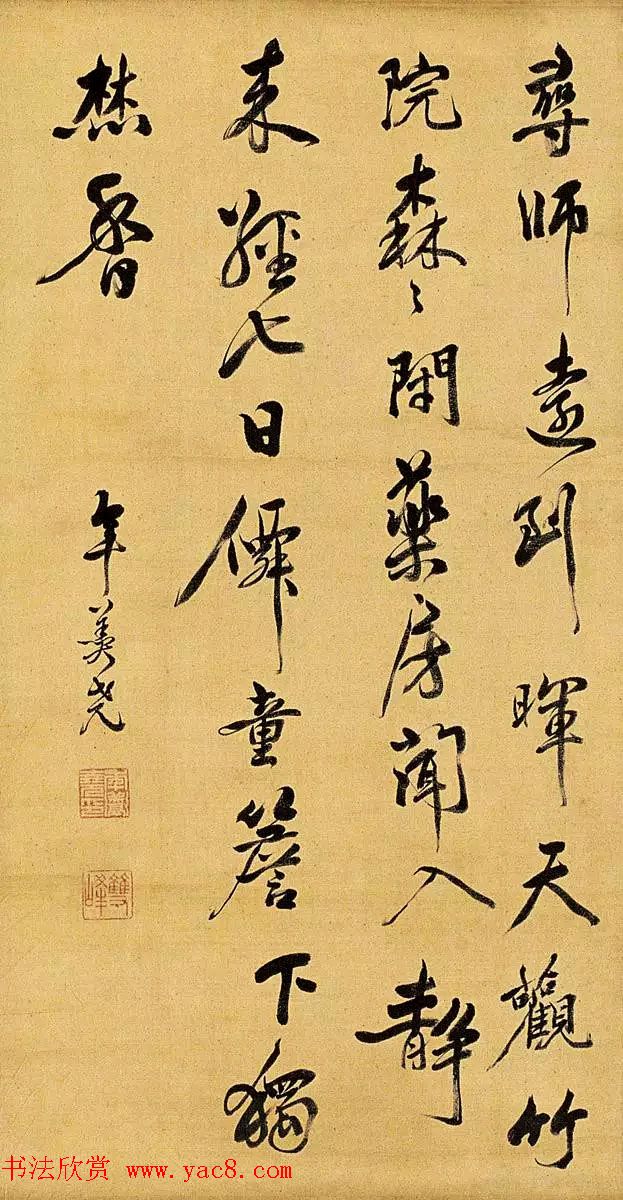 尋師遠到暉天觀竹
院森〻閑藥房聞入靜
來經七日僊童簷下獨
焚香
年羹堯
雙峰
书法欣赏 www.yac8.com